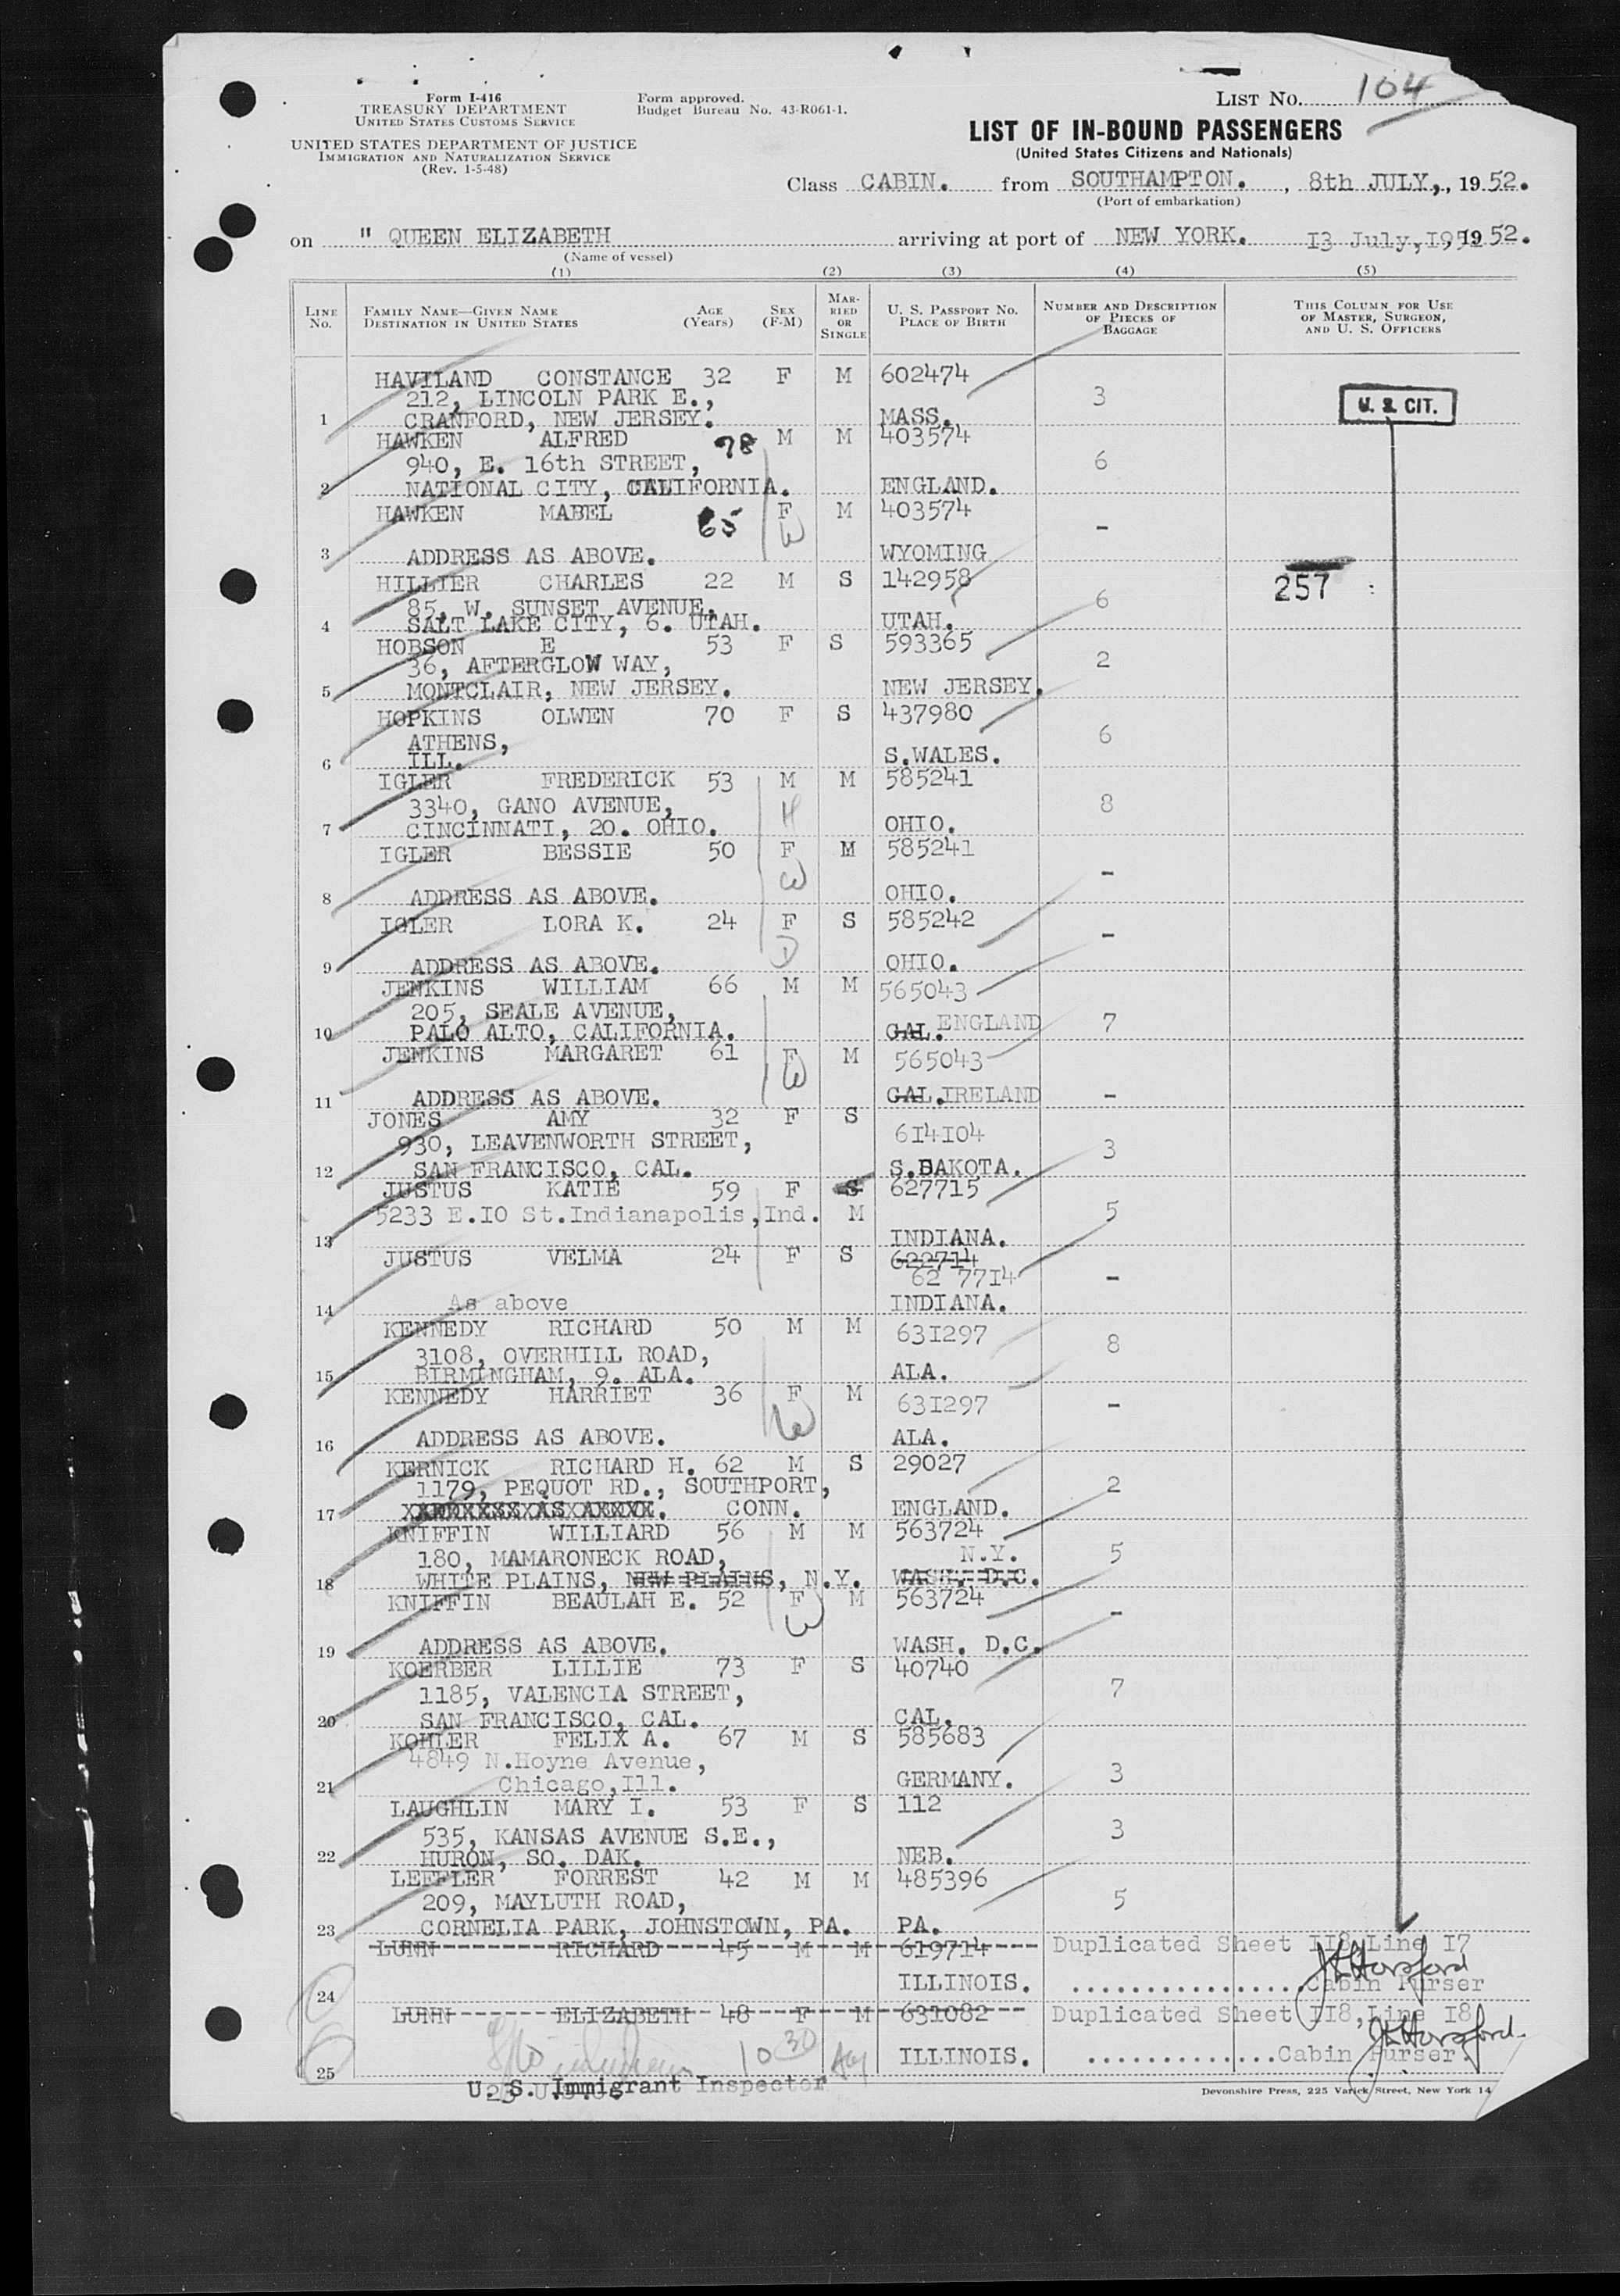 Form I-416
TREASURY DEPARTMENT
UNITED STATES CUSTOMS SERVICE
UNITED STATES DEPARTMENT OF JUSTICE
IMMIGRATION AND NATURALIZATION SERVICE
(Rev. 1-5-48)
Form approved.
Budget Bureau No. 43-R061-1.
LIST NO. 104
LIST OF IN-BOUND PASSENGERS
(United States Citizens and Nationals)
Class CABIN. from SOUTHAMPTON. , 8th JULY, , 19 52.
(Port of embarkation)
on " QUEEN ELIZABETH arriving at port of NEW YORK. 13 July, 1952, 19 52.
(Name of vessel)
(1) (2) (3) (4) (5)
LINE NO. FAMILY NAME—GIVEN NAME DESTINATION IN UNITED STATES AGE (Years) SEX (F-M) MARRIED OR SINGLE U. S. PASSPORT NO. PLACE OF BIRTH NUMBER AND DESCRIPTION OF PIECES OF BAGGAGE THIS COLUMN FOR USE OF MASTER, SURGEON, AND U. S. OFFICERS
HAVILAND CONSTANCE 32 F M 602474
212, LINCOLN PARK E., 3 U. S. CIT.
1 CRANFORD, NEW JERSEY. MASS.
HAWKEN ALFRED 78 M M 403574
940, E. 16th STREET, 6
2 NATIONAL CITY, CALIFORNIA. ENGLAND.
HAWKEN MABEL 65 F M 403574
W -
3 ADDRESS AS ABOVE. WYOMING
HILLIER CHARLES 22 M S 142958 257
85, W. SUNSET AVENUE, 6
4 SALT LAKE CITY, 6. UTAH. UTAH.
HOBSON E 53 F S 593365
36, AFTERGLOW WAY, 2
5 MONTCLAIR, NEW JERSEY. NEW JERSEY.
HOPKINS OLWEN 70 F S 437980
ATHENS, 6
6 ILL. S.WALES.
IGLER FREDERICK 53 M M 585241
3340, GANO AVENUE, H 8
7 CINCINNATI, 20. OHIO. OHIO.
IGLER BESSIE 50 F M 585241
W -
8 ADDRESS AS ABOVE. OHIO.
IGLER LORA K. 24 F S 585242
D -
9 ADDRESS AS ABOVE. OHIO.
JENKINS WILLIAM 66 M M 565043
205, SEALE AVENUE,
10 PALO ALTO, CALIFORNIA. CAL. ENGLAND 7
JENKINS MARGARET 61 F M 565043
W
11 ADDRESS AS ABOVE. CAL. IRELAND -
JONES AMY 32 F S 614104
930, LEAVENWORTH STREET, 3
12 SAN FRANCISCO, CAL. S.DAKOTA.
JUSTUS KATIE 59 F S 627715
5233 E.10 St.Indianapolis,Ind. M 5
13 INDIANA.
JUSTUS VELMA 24 F S 622714
62 7714 -
14 As above INDIANA.
KENNEDY RICHARD 50 M M 631297
3108, OVERHILL ROAD, 8
15 BIRMINGHAM, 9. ALA. ALA.
KENNEDY HARRIET 36 F M 631297
W -
16 ADDRESS AS ABOVE. ALA.
KERNICK RICHARD H. 62 M S 29027
1179, PEQUOT RD., SOUTHPORT, 2
17 CONN. ENGLAND.
KNIFFIN WILLIARD 56 M M 563724
180, MAMARONECK ROAD, N.Y. 5
18 WHITE PLAINS, NEW PLAINS, N.Y. WASH. D.C.
KNIFFIN BEAULAH E. 52 F M 563724
W -
19 ADDRESS AS ABOVE. WASH. D.C.
KOERBER LILLIE 73 F S 40740
1185, VALENCIA STREET, 7
20 SAN FRANCISCO, CAL. CAL.
KOHLER FELIX A. 67 M S 585683
4849 N.Hoyne Avenue,
21 Chicago,Ill. GERMANY. 3
LAUGHLIN MARY I. 53 F S 112
535, KANSAS AVENUE S.E., 3
22 HURON, SO. DAK. NEB.
LEFFLER FORREST 42 M M 485396
209, MAYLUTH ROAD, 5
23 CORNELIA PARK, JOHNSTOWN, PA. PA.
LUNN RICHARD 45 M M 619714 Duplicated Sheet 118,Line 17
ILLINOIS. Cabin Purser
24
LUNN ELIZABETH 48 F M 631082 Duplicated Sheet 118,Line 18
10 30
25 ILLINOIS. Cabin Purser.
U. S. Immigrant Inspector
Devonshire Press, 225 Varick Street, New York 14